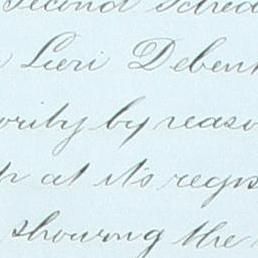 Second Sched
Lieri Debent
ority by reaso
p at its regis
showing the